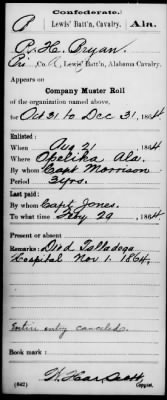 Confederate.
B Lewis' Batt'n, Cavalry. Ala.
R. H. Bryan.
Pvt, Co. , Lewis' Batt'n, Alabama Cavalry.
Appears on
Company Muster Roll
of the organization named above,
for Oct 31 to Dec 31, 1864
Enlisted:
When Aug 21, 1864
Where Opelika Ala.
By whom Capt Morrison
Period 3 yrs.
Last paid:
By whom Capt. Jones.
To what time Feby 29, 1864
Present or absent
Remarks: Died Talladega
Hospital Nov. 1. 1864.
Entire entry canceled.
Book mark:
(642) Copyist.